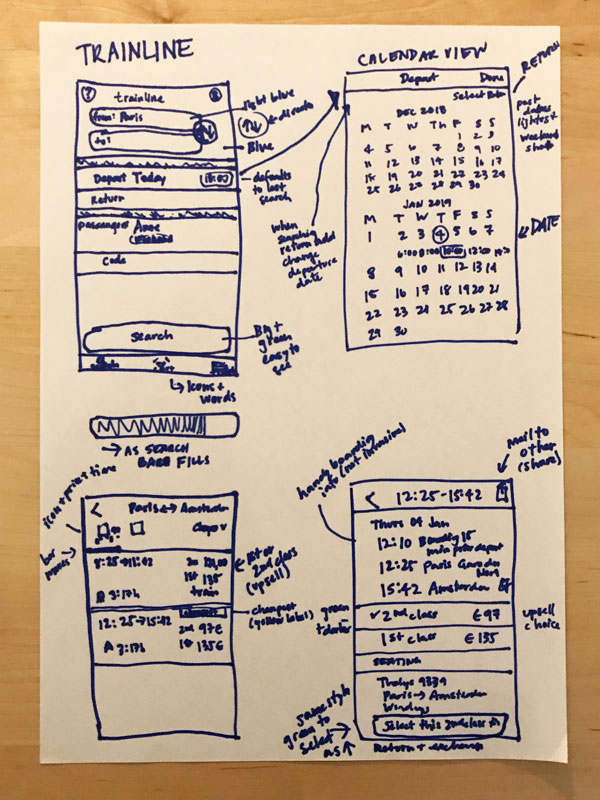 TRAINLINE
?
trainline
from: Paris
to:
light blue
Blue
Depart Today
Return
defaults
to last
search
passenger Anne
Code
Search
Big +
green
easy to
see
Icons +
words
AS SEARCH
BARE FILLS
CALENDAR VIEW
Depart
Done
RETURN
DEC 2018
M T W Th F S S
1 2 3
4 5 6 7 8 9 10
11 12 13 14 15 16 17
18 19 20 21 22 23 24
25 26 28 29 30
past
dates
JAN 2019
M T W T F S S
1 2 3 4 5 6 7
6:00 8:00 10:00 12:00
8 9 10 11 12 13 14
15 16 17 18 19 20 21
22 23 24 25 26 27 28
29 30
DATE
when
searching
return
change
departure
date
icon + price + time
bar
moves
Paris <-> Amsterdam
8:25 -> 11:42
1st 135
train
3:17h
1st or
2nd class
(upsell)
12:25 -> 15:42
2nd 97€
3:17h
1st 135€
cheapest
(yellow label)
handy boarding
info (not intrusive)
Mail to
other
(share)
< 12:25 - 15:42
Thurs 04 Jan
12:10 Boarding 15
min prior depart
12:25 Paris Gare du
Nord
15:42 Amsterdam
green
+ darker
✓ 2nd class €97
1st class €135
upsell
choice
SEATING
Thalys 9339
Paris -> Amsterdam
Windows
Select this 2nd class
same style
green to
select
as ↑
Return + exchange